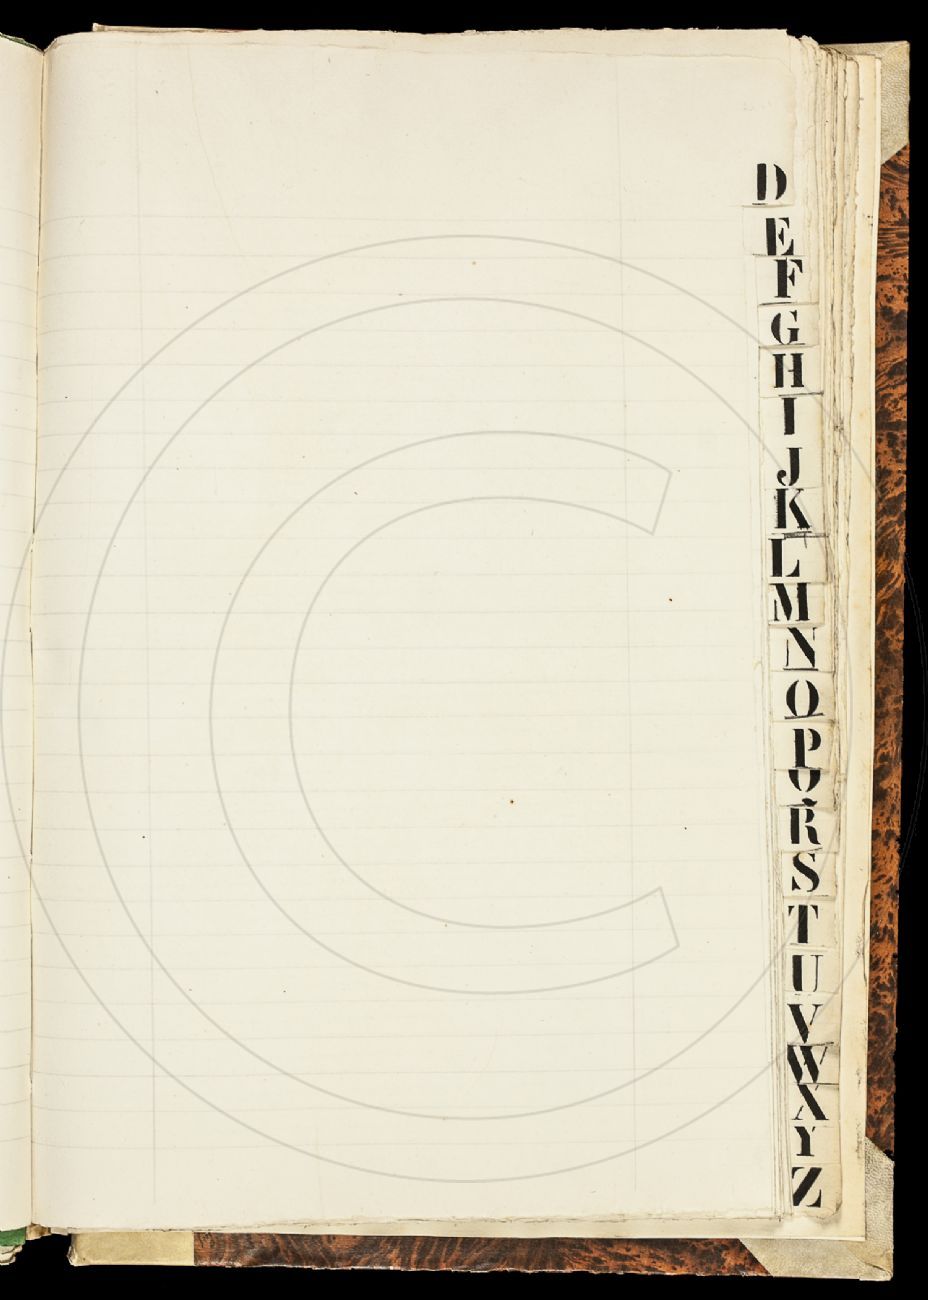 D
E
F
G
H
I
J
K
L
M
N
O
P
Q
R
S
T
U
V
W
X
Y
Z